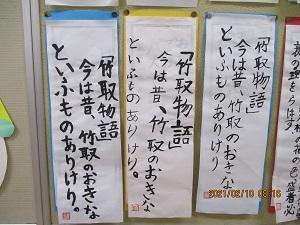 「竹取物語」
今は昔、竹取のおきな
といふものありけり。
「竹取物語」
今は昔、竹取のおきな
といふものありけり。
「竹取物語」
今は昔、竹取のおきな
といふものありけり
2021/02/10